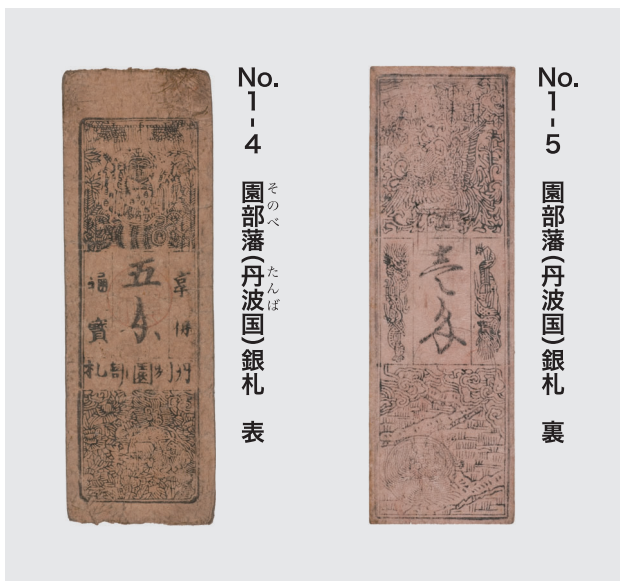 No.1-4 園部藩(丹波国)銀札 表
そのべ たんば
五
通寳
札部園州丹
No.1-5 園部藩(丹波国)銀札 裏
壱